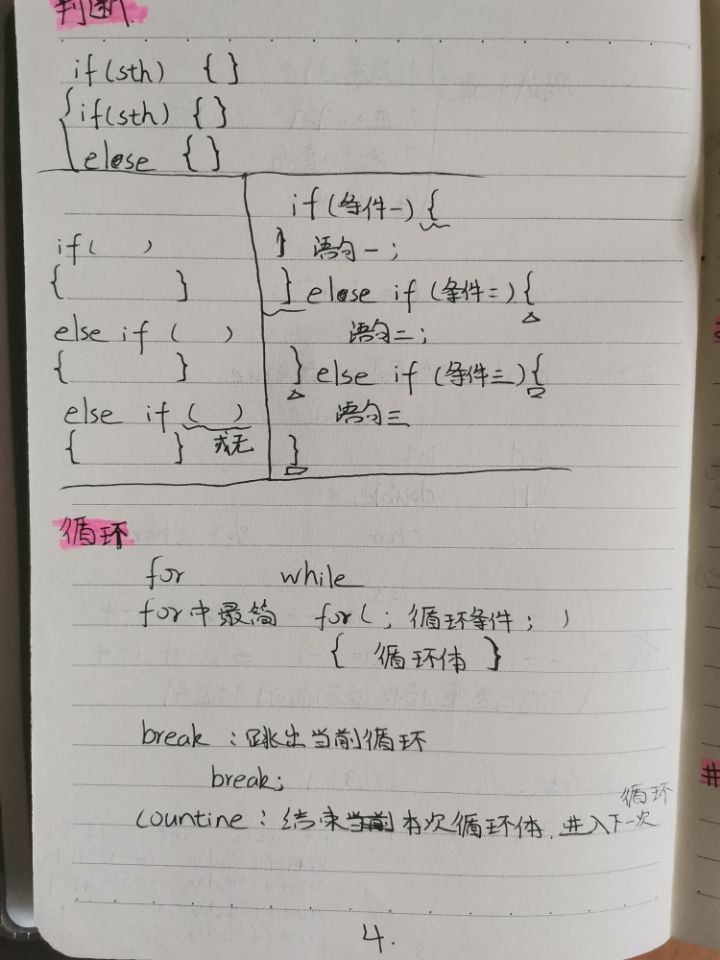 判断
if(sth) {}
if(sth) {}
else {}
if( )
{ }
else if ( )
{ }
else if ( )
{ } 或无
if(条件一) {
} 语句一;
} else if (条件二) {
语句二;
} else if (条件三) {
语句三
}
循环
for while
for中最简 for( ; 循环条件 ; )
{ 循环体 }
break : 跳出当前循环
break;
countine : 结束当前本次循环体, 进入下一次循环
4.